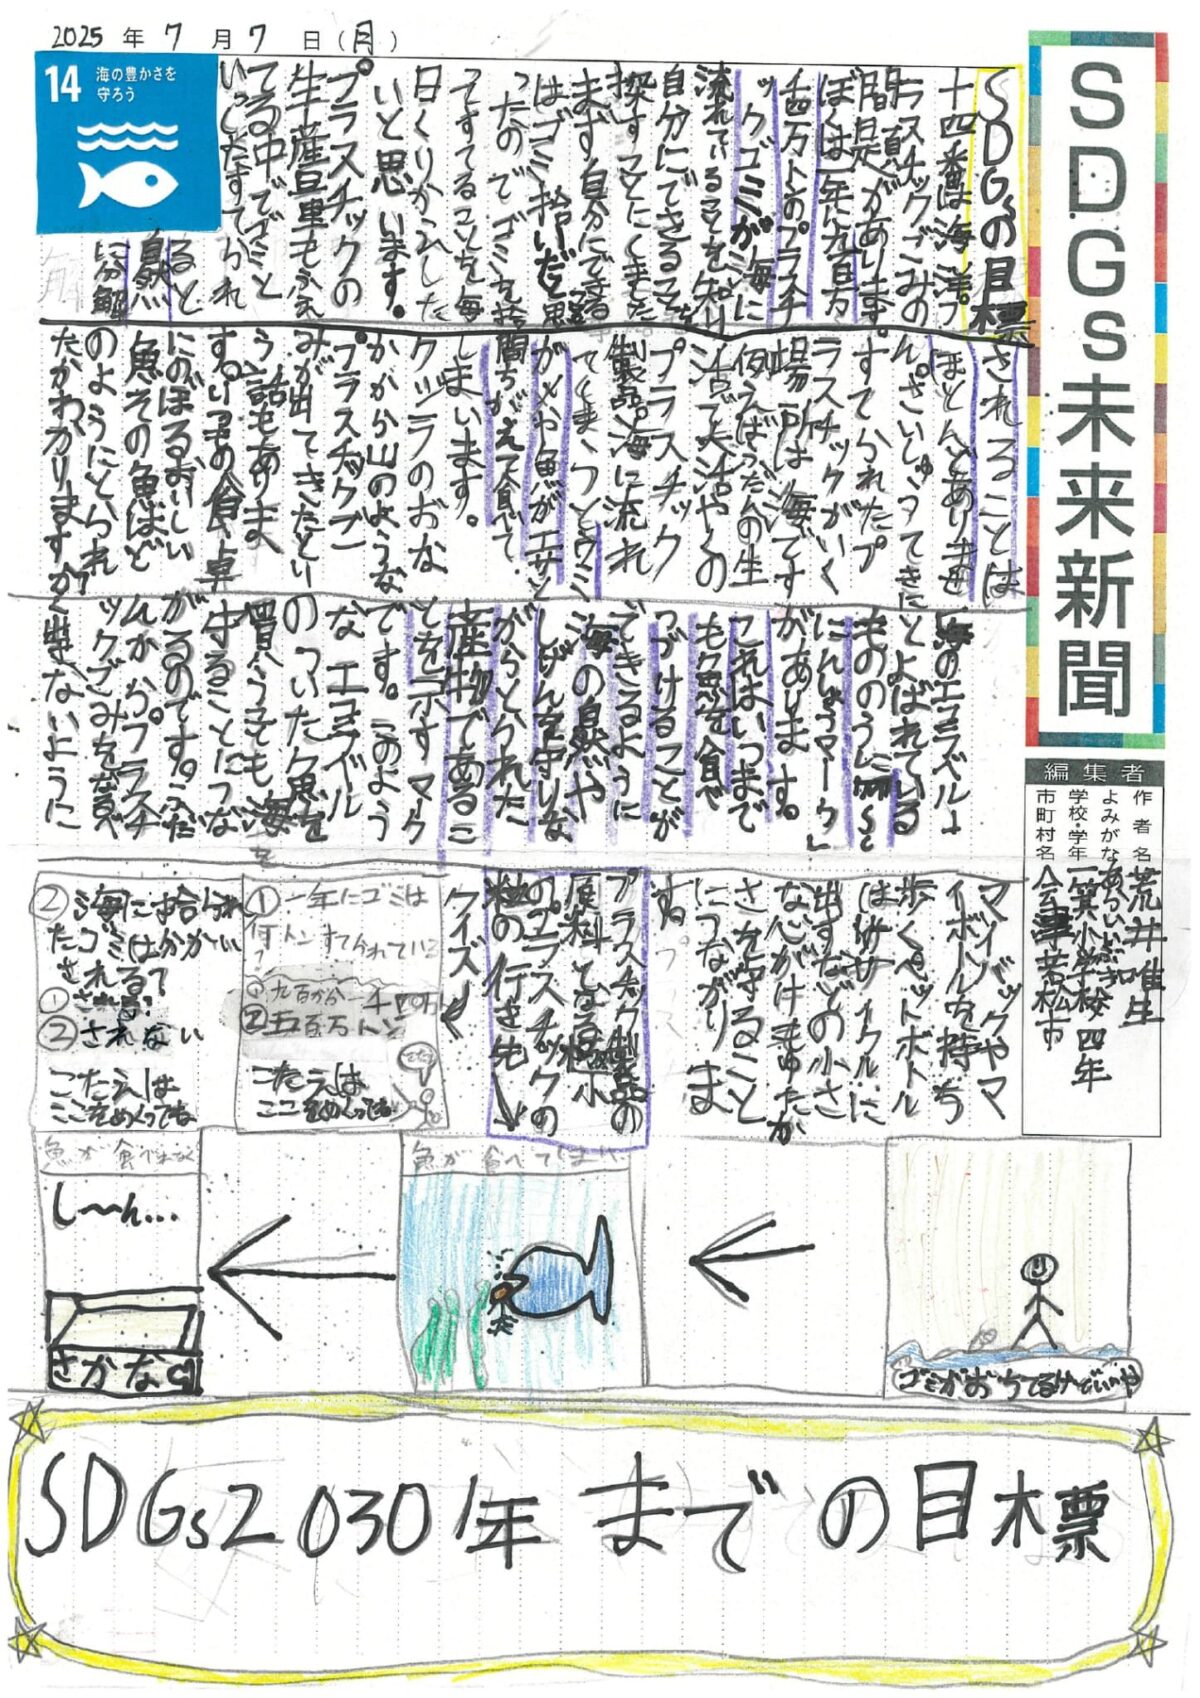 2025年7月7日(月)
SDGs未来新聞
編集者
作者名 荒井唯生
よみがな あらいいぶき
学校・学年 一箕小学校 四年
市町村名 会津若松市
14 海の豊かさを
守ろう
SDGsの目標
十四番は海洋プ
ラスチックごみの
問題があります。
ぼくは一年に九百万
千四万トンのプラスチ
ックゴミが海に
流れていることを知り
自分にできることを
探すことにしました
まず自分にできる
はゴミ拾いだと思
ったのでゴミを拾
てすてることを毎
日くりかえした
いと思います。
プラスチックの
生産量もふえ
てる中でゴミと
いっしょにすてられ
ると
自然
に分解
されることは
ほとんどありませ
ん。さいしゅうてきに
すてられたプ
ラスチックがいく
場所は海です
例えばふだんの生
活で大活やくの
プラスチック
製品。海に流れ
てしまうとウミ
ガメや魚がエサと
間ちがえて食べて
しまいます。
クジラのおな
かから山のような
プラスチックゴ
ミが出てきたとい
う話もありま
す。いつもの食卓
にのぼるおいしい
魚その魚はど
のようにとられ
たかわかりますか?
「海のエコラベル」
とよばれている
もののうに「MSC
にんしょうマーク」
があります。
これはいつまで
も魚を食べ
つづけることが
できるように
海の自然や
しげんを守りな
がらとられた
産物であるこ
とを示すマーク
です。このよう
なエコラベル
のついた魚を
買うことも海を
守ることにつな
がるのです。ふだ
んからプラスチ
ックごみをなるべ
く出さないように
マイバックやマ
イボトルを持ち
歩くペットボトル
はリサイクルに
出すなどの小さ
な心がけもゆたか
さを守ること
につながりま
すね
プラスチック製品の
原料となる極小
のプラスチックの
粒の行き先↓
クイズ
①一年にゴミは
何トンすてられている
?
①九百から一千四万
②五百万トン
こたえは
ここをめくってね
②海に拾われ
たゴミは分かい
される?
①される?
②されない
こたえは
ここをめくってね
ゴミがおちてるけどいいや
魚が食べてしまい
魚が食べれなく
し〜ん…
さかな
SDGs2030年までの目標